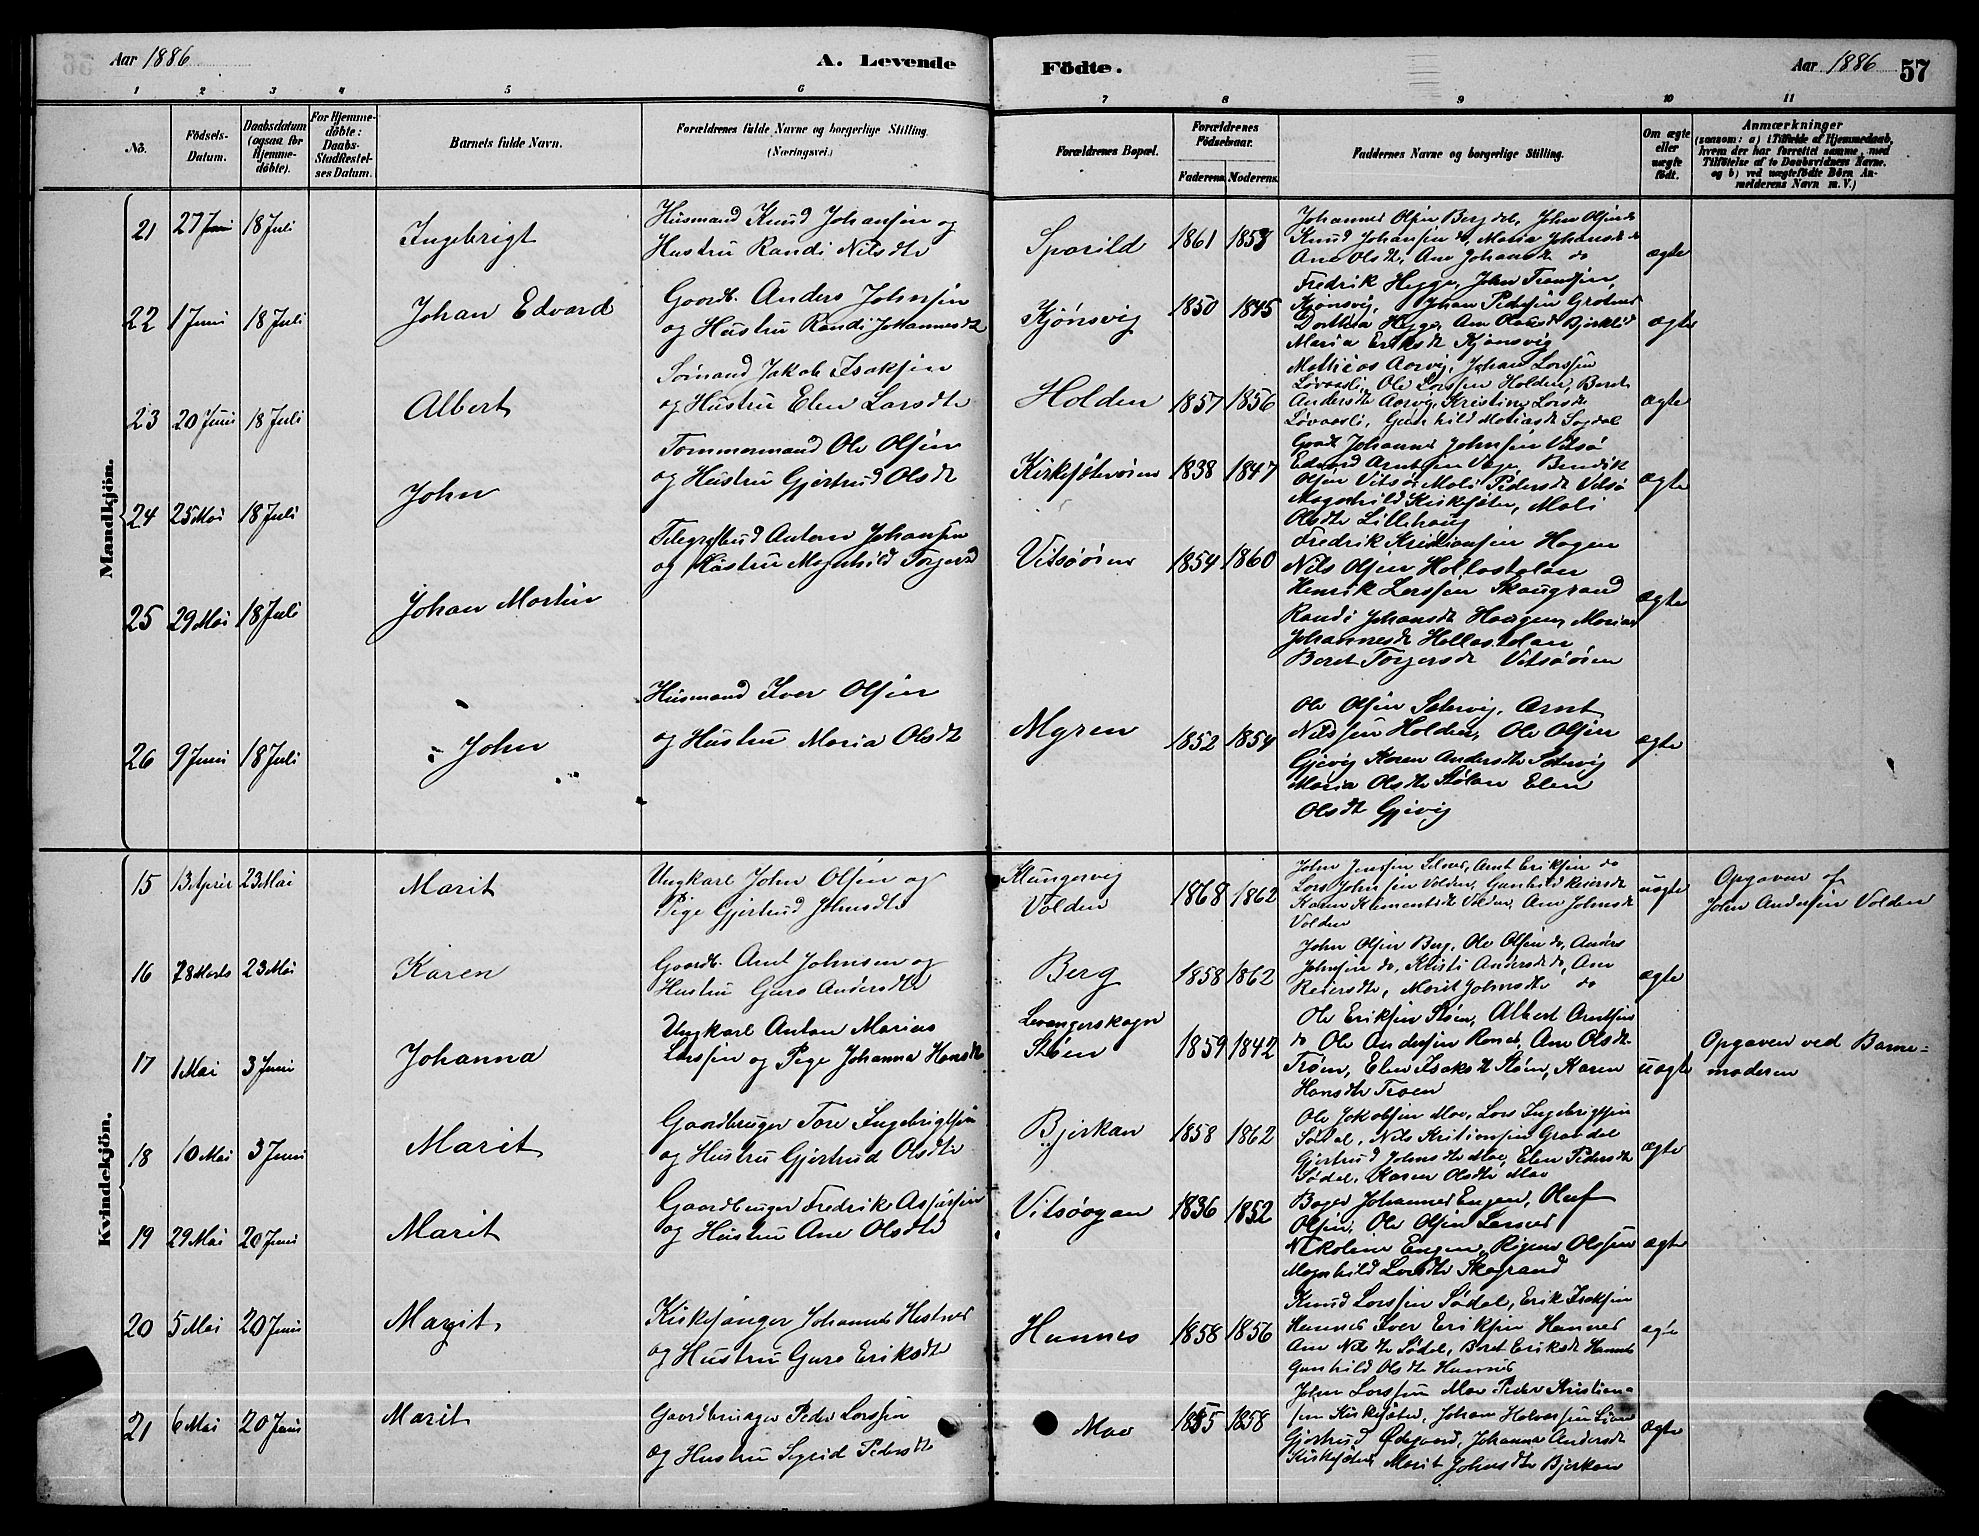 Aar 1886
A. Levende Födte.
Aar 1886 57
1 2 3 4 5 6 7 8 9 10 11
No.
Födsels-Datum.
Daabsdatum (ogsaa for Hjemmedöbte).
For Hjemmedöbte: Daabs-Stadfæstelses Datum.
Barnets fulde Navn.
Forældrenes fulde Navne og borgerlige Stilling.
(Næringsvei.)
Forældrenes Bopæl.
Forældrenes Födselsaar.
Faderens Moderens.
Faddernes Navne og borgerlige Stilling.
Om ægte eller uægte födt.
Anmærkninger
(saasom: a) i Tilfælde af Hjemmedaab,
hvem der har forrettet samme, med
Tilföielse af to Daabsvidners Navne,
og b) ved uægtefödte Börn An-
melderens Navn m. V.)
Mandkjön.
21 27 Juni 18 Juli Ingebrigt
Husmand Knud Johansen og
Hustru Randi Nilsdtr
Sporild 1861 1853
Johannes Olsen Bergdal, John Olsen do
Knud Johansen do, Maria Johansdt do
Ane Olsdtr, Ane Johansdtr do
ægte
22 1 Juni 18 Juli Johan Edvard
Gaardb. Anders Johnsen
og Hustru Randi Johannesdt
Kjönsvig 1850 1845
Fredrik Hegge, John Fransen,
Kjönsvig, Johan Pedersen Grotnes
Dorthea Hegge, Ane Olausd Bjerklid
Maria Eriksdt Kjönsvig
ægte
23 20 Juni 18 Juli Albert
Sömand Jakob Isaksen
og Hustru Elen Larsdtr
Holden 1857 1856
Mathias Aarvig, Johan Larssen
Lövaasli, Ole Larssen Holden, Beret
Andersdtr Aarvig, Kristine Larsdtr
Lövaasli, Gunhild Matiasdt Sagdal
ægte
24 25 Mai 18 Juli John
Tømmermand Ole Olsen
og Hustru Gjertrud Olsdt
Kirksæterören 1838 1847
Gaardb Johannes Johnsen Vitsö
Edvard Arntsen Vage, Bendik
Olsen Vitsö, Mali Pedersdt Vitsö
Magnhild Kirksæter, Mali
Olsdtr Lillehaug
ægte
25 29 Mai 18 Juli Johan Martin
Telegrafbud Anton Johansen
og Hustru Magnhild Torgersd
Vitsöören 1854 1860
Fredrik Kristiansen Hagen
Nils Olsen Hollastølan
Henrik Larssen Skaugrand
Randi Johansdt Haagen, Maria
Johannesdt Hollastølan
Beret Torgersdt Vitsöören
ægte
26 9 Juni 18 Juli John
Husmand Iver Olsen
og Hustru Maria Olsdtr
Myren 1852 1854
Ole Olsen Sætervig, Arnt
Nilssen Holden, Ole Olsen
Gjevig Karen Andersdtr Sætervig
Maria Olsdtr Stølan Elen
Olsdt Gjevig
ægte
Kvindekjön.
15 13 April 23 Mai Marit
Ungkarl John Olsen og
Pige Gjertrud Johnsdtr
Klungervig
Volden 1868 1862
John Jenssen Selnes, Arnt Eriksen do
Lars Johnsen Volden, Gunhild Reiersdt
Karen Klementsdt Volden, Ane Johnsdt
Volden
uægte
Opgaven af
John Andersen Volden
16 28 Marts 23 Mai Karen
Gaardb. Arnt Johnsen og
Hustru Guro Andersdtr
Berg 1858 1862
John Olsen Berg, Ole Olsen do, Anders
Johnsen do, Kristi Andersdt do, Ane
Reiersdtr, Marit Johnsdtr do
ægte
17 1 Mai 3 Juni Johanna
Ungkarl Anton Marius
Larssen og Pige Johanna Hansdt
Levangerskogn
Stöen 1859 1842
Ole Eriksen Stöen, Albert Arntsen
do Ole Andersen Rones, Ane Olsdt
Trøen, Elen Isaksdt Støen, Karen
Hansdtr Trøen
uægte
Opgaven ved Barne-
moderen
18 10 Mai 3 Juni Marit
Gaardbruger Tore Ingebrigtsen
og Hustru Gjertrud Olsdtr
Bjerkan 1858 1862
Ole Jakobsen Moe, Lars Ingebrigtsen
Södal, Nils Kristiansen Grandal
Gjertrud Johnsdtr Moe, Elen Pedersdt
Södal, Karen Olsdtr Moe
ægte
19 29 Mai 20 Juni Marit
Gaardbruger Fredrik Assersen
og Hustru Ane Olsdtr
Vitsöogan 1836 1852
Bager Johannes Engen, Oluf
Olsen, Ole Olsen
Nikoline Engen, Olssen
Magnhild Larsdtr Skagrand
ægte
20 5 Mai 20 Juni Margit
Kirkesanger Johannes Hestnes
og Hustru Guro Eriksdtr
Hunnes 1858 1856
Knud Larssen Södal, Erik Isaksen
Hunnes Iver Eriksen Hunnes
Ane Nilsdtr Södal, Beret Eriksdt Hunnes
Gunhild Olsdtr Hunnes
ægte
21 6 Mai 20 Juni Marit
Gaardbruger Peder Larssen
og Hustru Sigrid Pedersdt
Moe 1855 1858
John Larssen Moe Peder Kristian-
sen Kirksæter, Johan Halvorsen Lian
Gjertrud Ödegaard, Johanna Andersdt
Kirksæter, Marit Johnsdtr Bjerkan
ægte